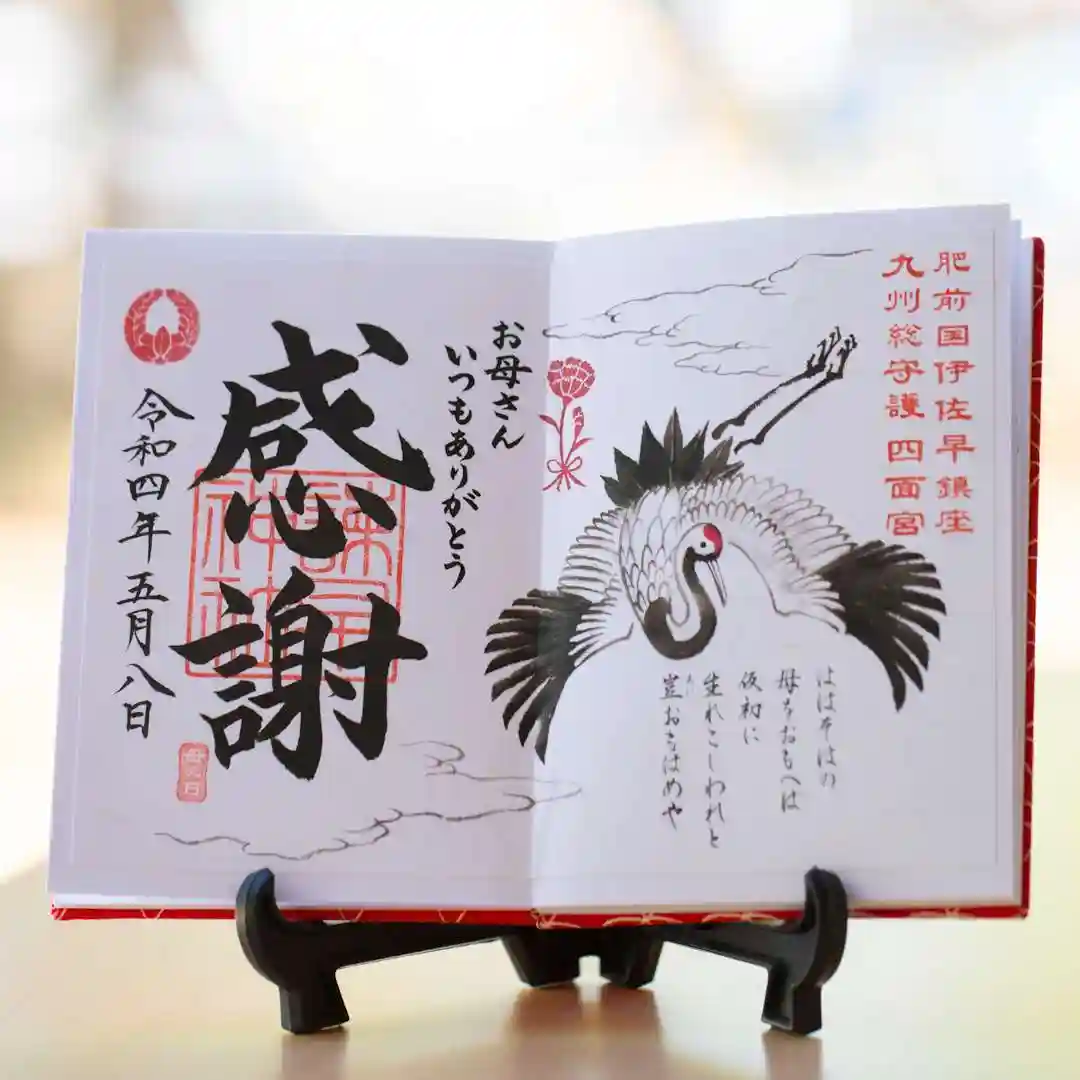 肥前国伊佐早鎮座
九州総守護 四面宮
ははそはの
母をおもへは
仮初に
生れこしわれと
豈おもはめや
お母さん
いつもありがとう
感謝
諫早
神社
令和四年五月八日
母の日